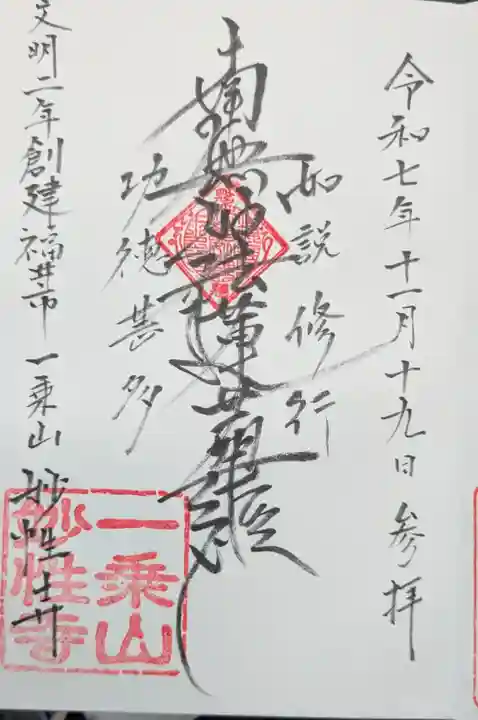 令和七年十一月十九日参拝
如説修行
南無妙法蓮華経
功徳甚多
文明二年創建福井市一乗山妙性寺
一乗山
妙性寺